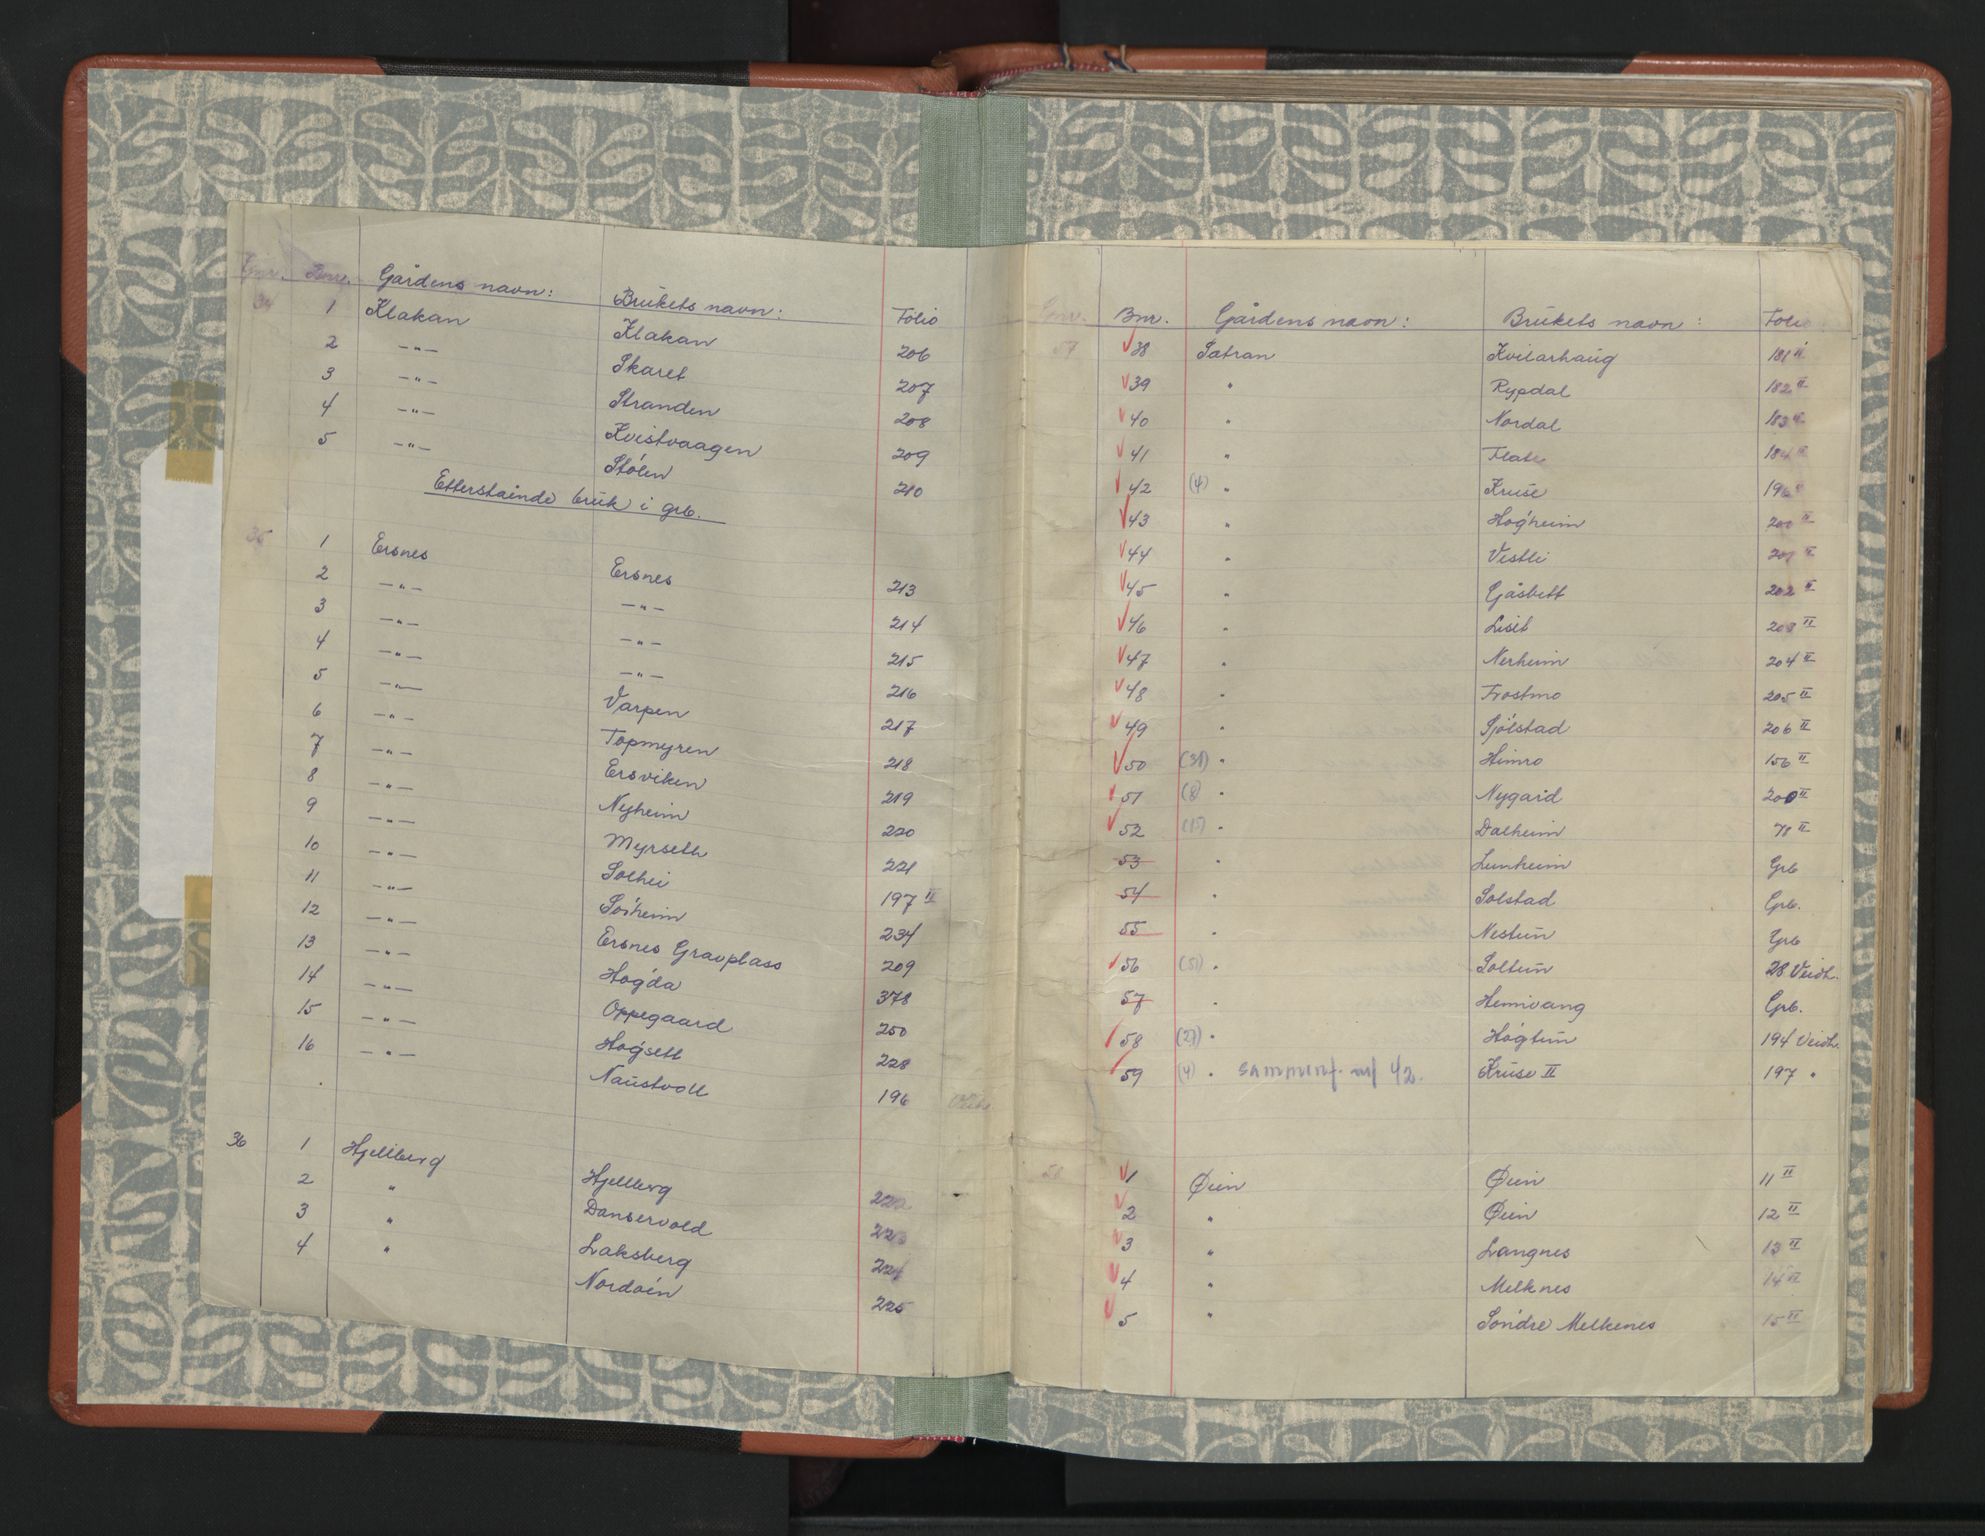 Gnr. Bnr. Gårdens navn: Brukets navn: Folio
34 1 Klakan Klakan 206
2 —"— Skaret 207
3 —"— Stranden 208
4 —"— Kvistvaagen 209
5 —"— Stölen 210
Etterstående bruk i grb.
35 1 Ersnes Ersnes 213
2 —"— —"— 214
3 —"— —"— 215
4 —"— —"— 216
5 —"— Varpen 217
6 —"— Topmyren 218
7 —"— Ersviken 219
8 —"— Nyheim 220
9 —"— Myrseth 221
10 —"— Solhei 197 II
11 —"— Söiheim 234
12 —"— Ersnes Gravplass 209
13 —"— Högda 378
14 —"— Oppegaard 250
15 —"— Högsett 228
16 —"— Naustvoll 196
36 1 Hjellberg Hjellberg 222
2 " Danservold 223
3 " Laksberg 224
4 " Nordöén 225
Gnr. Bnr. Gårdens navn: Brukets navn: Folio
57 38 Sætran Kvilarhaug 181 II
39 " Rypdal 182 II
40 " Nordal 183 II
41 " Flate 184 II
42 (4) " Kruse 196
43 " Högheim 200 II
44 " Vestli 201 II
45 " Gjåsbett 202 II
46 " Liset 203 II
47 " Nerheim 204 II
48 " Frostmo 205 II
49 " Sjölstad 206 II
50 (31) " Heimro 156 II
51 (8) " Nygard 200 II
52 (15) " Dalheim 78 II
53 " Lunheim Grb
54 " Solstad Grb.
55 " Nestun Grb
56 (51) " Soltun 28 Veidh.
57 " Hemivang Grb.
58 (27) " Högtun 194 Veidh.
59 (4) " 42. Kruse II 197 "
58 1 Øien Øien 11 II
2 " Øien 12 II
3 " Langnes 13 II
4 " Melknes 14 II
5 " Söndre Melkenes 15 II